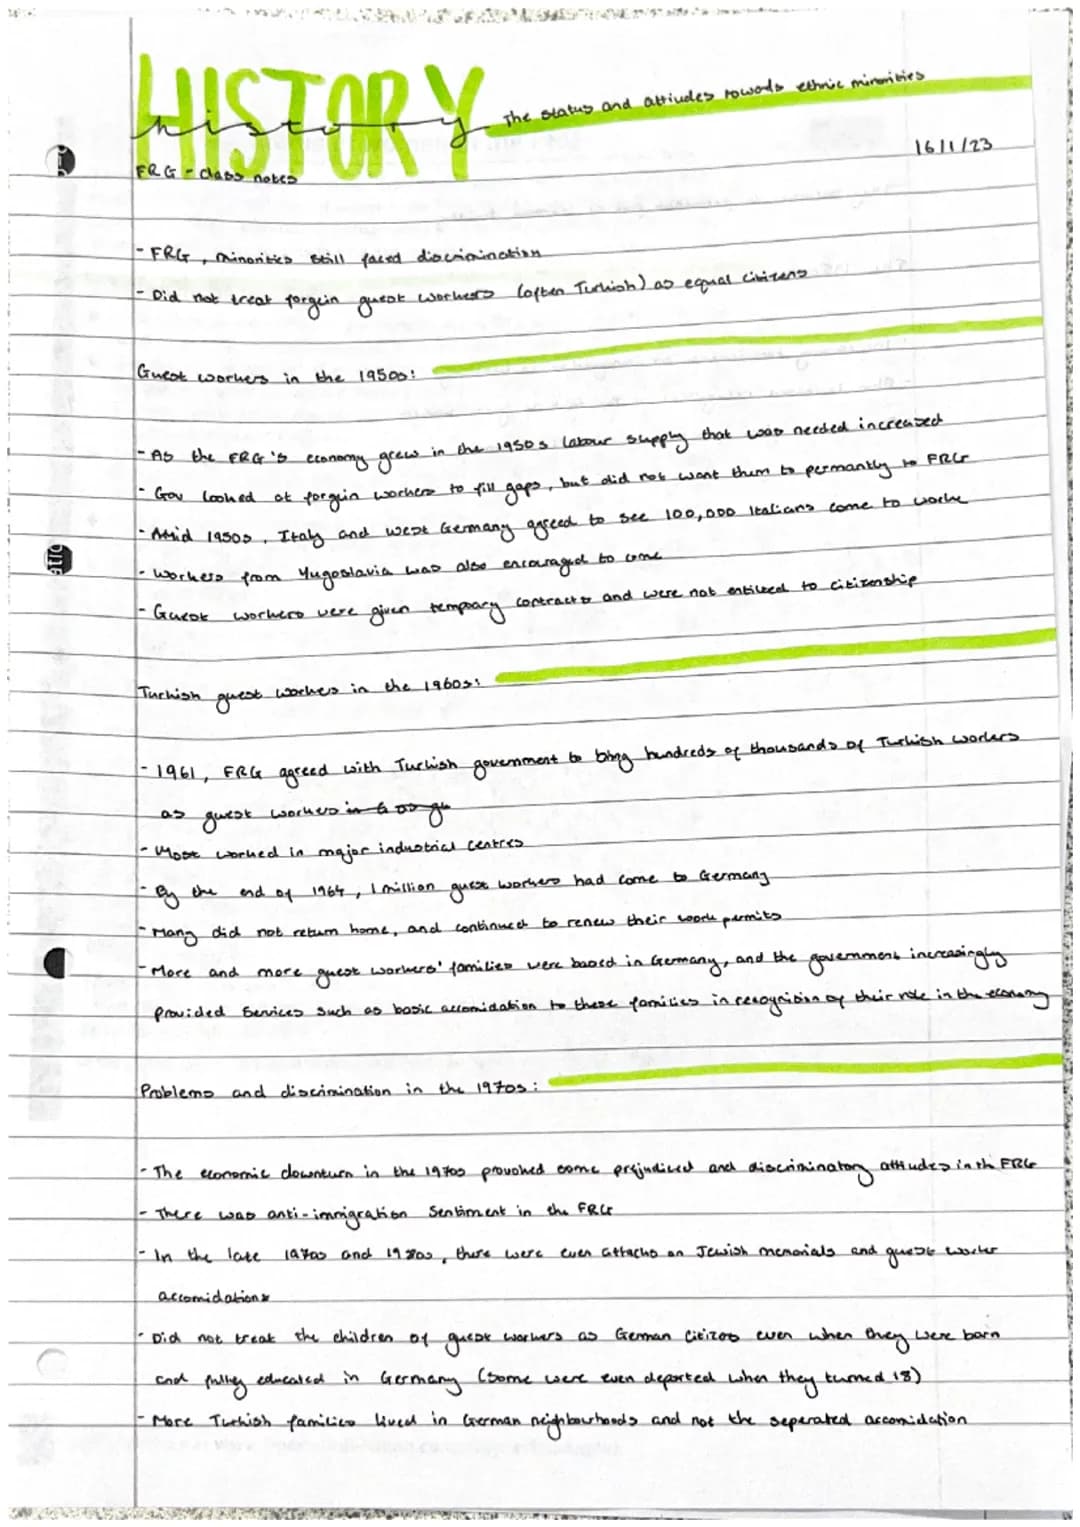 HISTORY
history
The status and attiudes towards ethnic minorities
16/1/23
FRG - class notes
- FRG, minorities still faced discrimination
- Did not treat forgein guest workers (often Turkish) as equal citizens
Guest workers in the 1950s:
- As the FRG's economy grew in the 1950s labour supply that was needed increased
- Gov looked at forguin workers to fill gaps, but did not want them to permantly to FRG
- Mid 1950s, Italy and west Germany agreed to see 100,000 Italians come to worke
- Workers from Yugoslavia was also encouraged to come
- Guest workers were given tempoary contracts and were not entileed to citizenship
Turkish guest workers in the 1960s:
- 1961, FRG agreed with Turkish government to bring hundreds of thousands of Turkish workers
as guest workers in
- Most worked in major industrial centres
- By the end of 1964, 1 million guest workers had come to Germany
- Many did not return home, and continued to renew their work permits
- More and more guest workers' families were based in Germany, and the government increasingly
provided services such as basic accomidation to these families in recognition of their role in the economy
Problems and discrimination in the 1970s:
- The economic downturn in the 1970s provoked some prejudiced and discriminatory attitudes in th FRG
- There was anti-immigration sentiment in the FRG
- In the late 1970s and 1980s, there were even attacks on Jewish memorials and guest worker
accomidations
- Did not treat the children of guest workers as German citizes even when they were born
and fulley educated in Germany (some were even deported when they turned 18)
- More Turkish families lived in German neighbourhoods and not the seperated accomidation